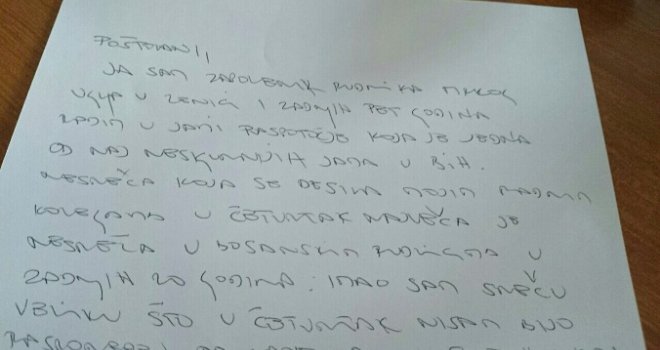 POŠTOVANI,
JA SAM ZAPOSLENIK RUDNIKA MRKOG
UGLJA U ZENICI I ZADNJIH PET GODINA
RADIM U JAMI RASPOTOČJE KOJA JE JEDNA
OD NAJ NESIGURNIJIH JAMA U BIH.
NESREČA KOJA SE DESILA MOJIM RADNIM
KOLEGAMA U ČETVRTAK NAJVEČA JE
NESREČA U BOSANSKIM RUDNICIMA U
ZADNJIH 20 GODINA. IMAO SAM SREČU
VELIKU ŠTO U ČETVRTAK NISAM BIO